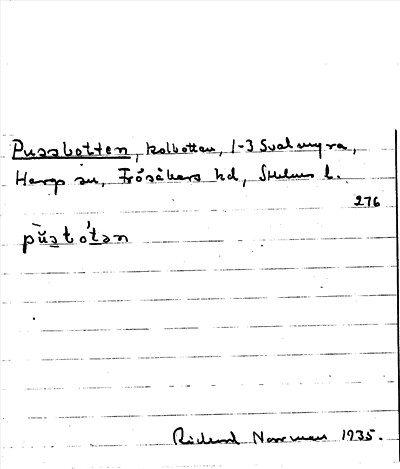 Pussbotten, kolbotten, 1-3 Svalmyra,
Harg sn, Frösåkers hd, Sthlms l.
276
pùsbó̀tən
Rickard Norrman 1935.